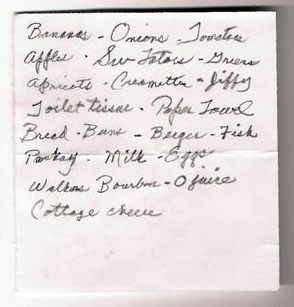 Bananas - Onions - Tomatoes
Apples - Sw Tators - Greens
Apricots - Creamettes - Jiffy
Toilet tissue - Paper Towel
Bread - Buns - Burger - Fish
Milk - Eggs
Walkers Bourbon - O juice
Cottage cheese